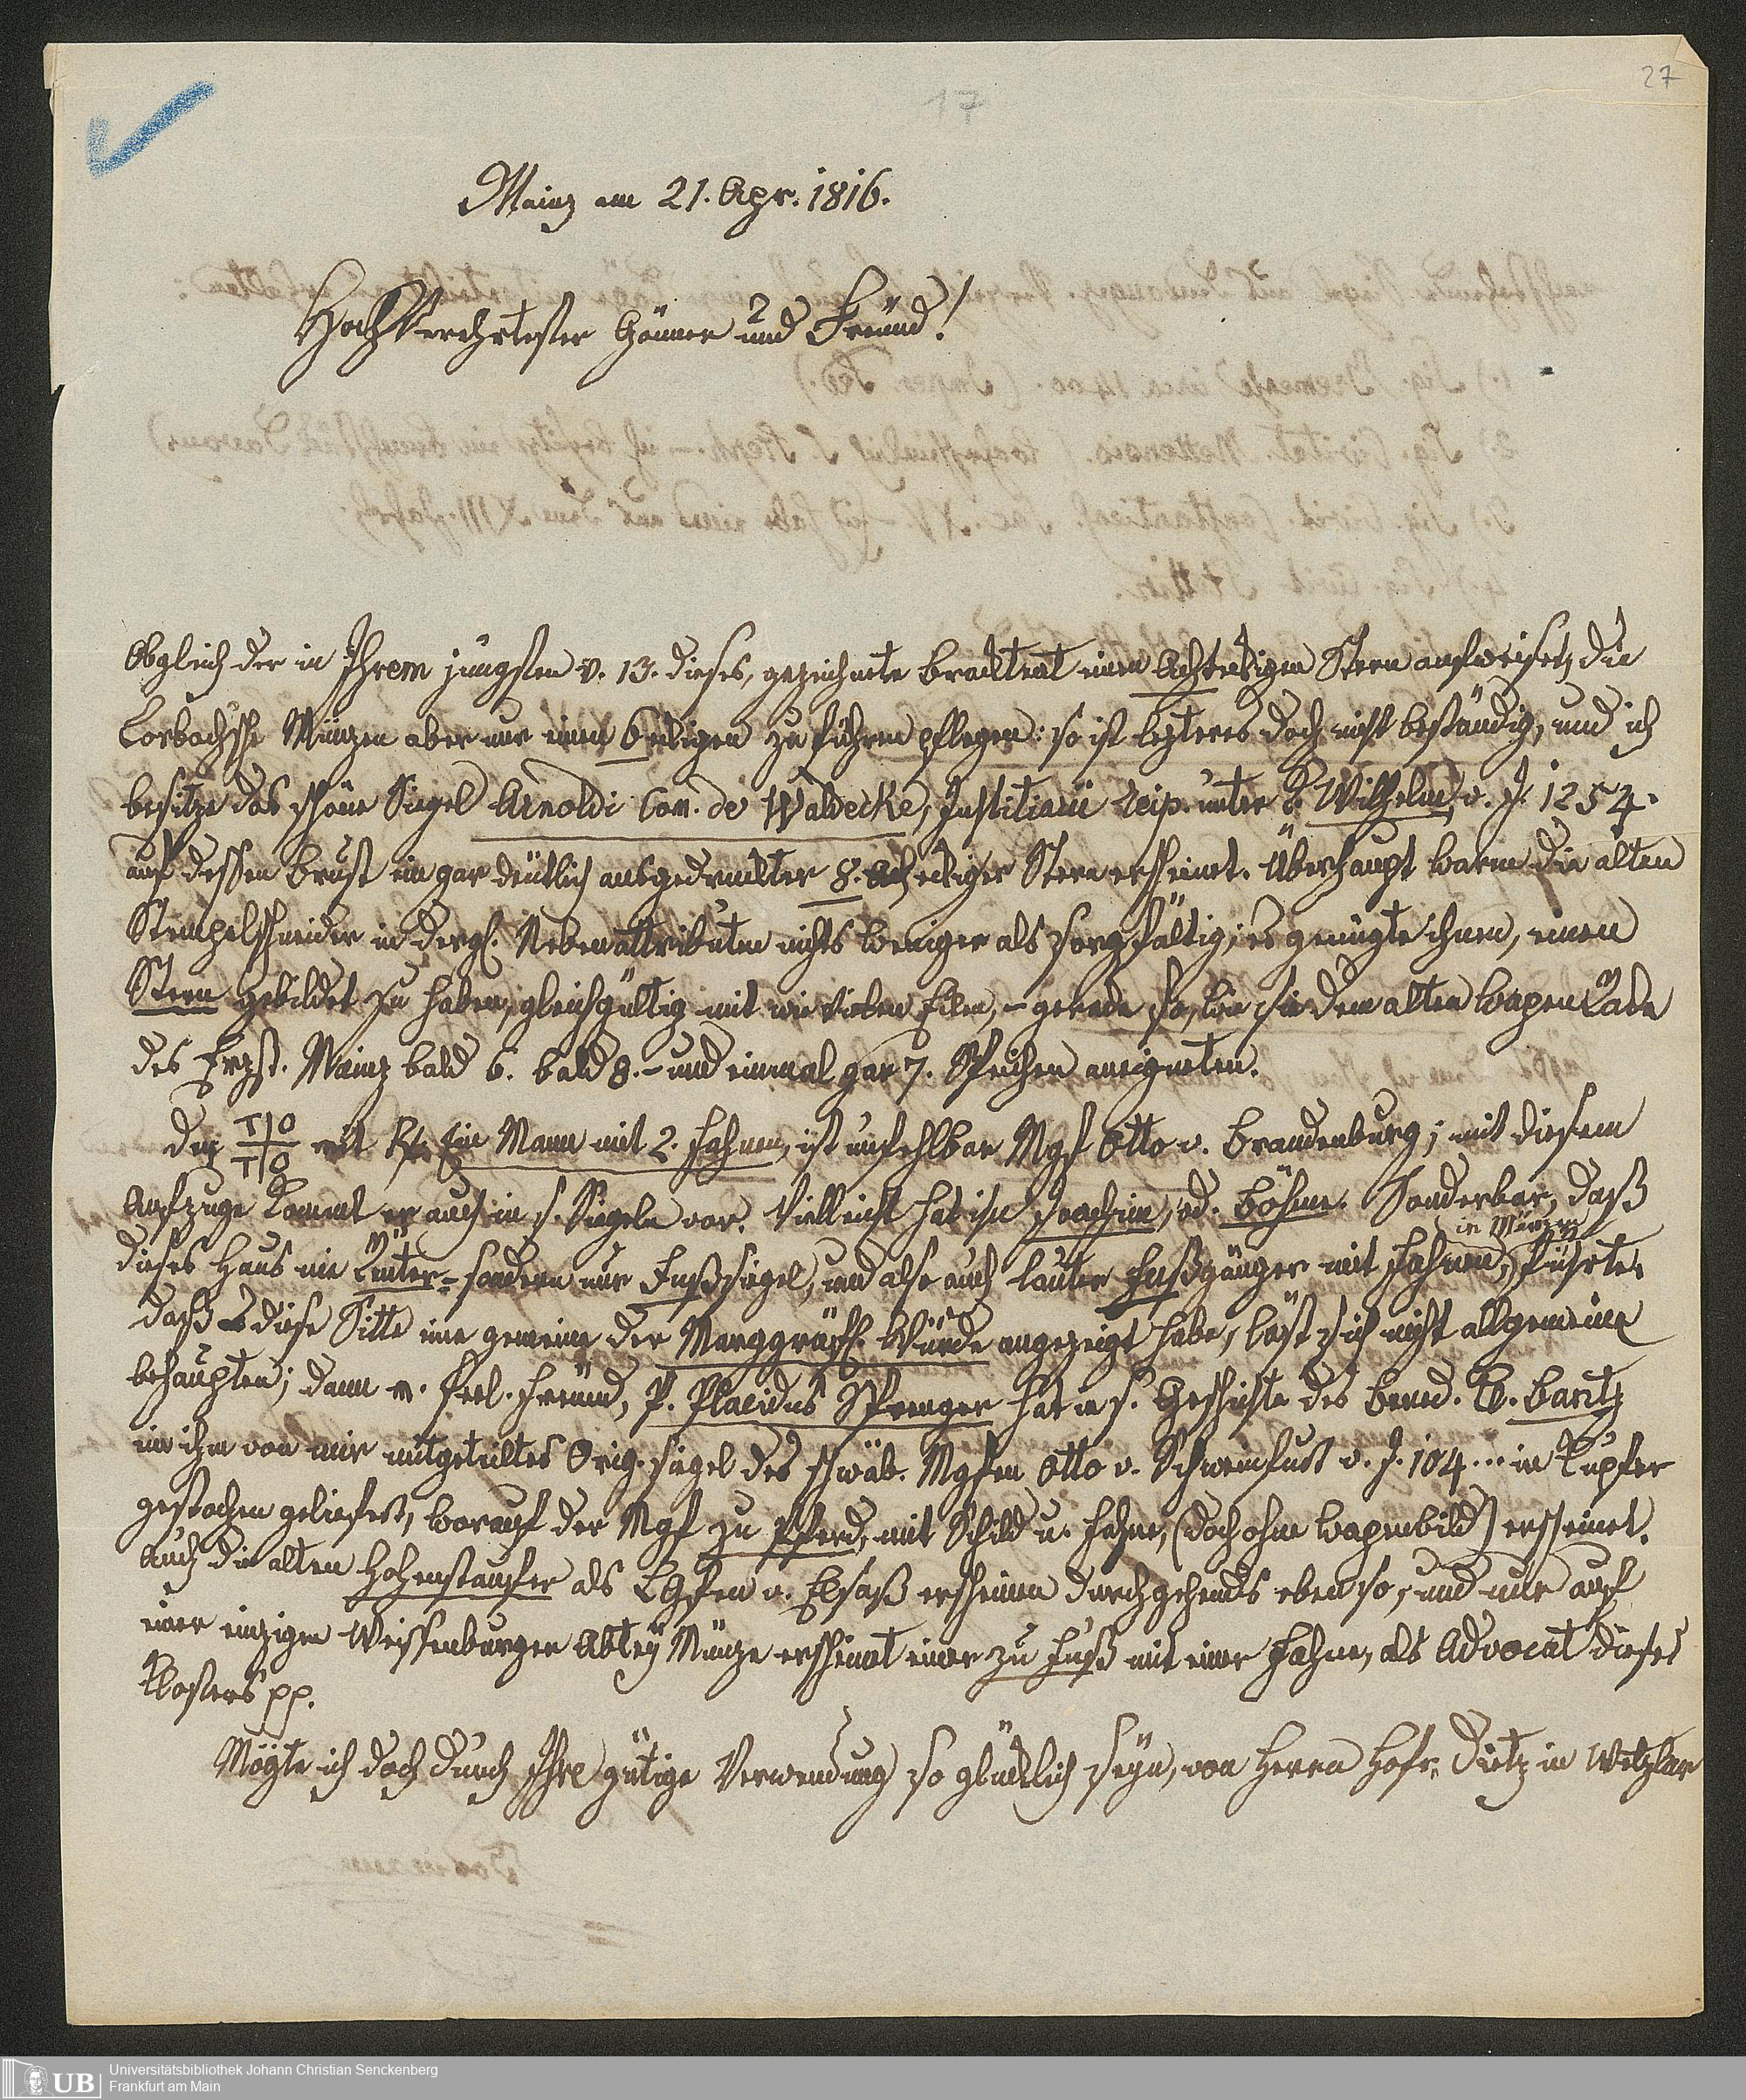 27
17
Mainz am 21. Apr. 1816.
HochVerehrtester Gönner und Freund!
Obgleich der in Ihrem jüngsten v. 13. dieses, gezeichnete Bracteat einen Achteckigen Stern aufweiset, die
Corbach'sche Münzen aber nur einen 6 eckigen zu führen pflegen: so ist lezteres doch nicht beständig, und ich
besitze das schöne Siegel Arnoldi Com. de Waldecke, Justitiarii reip. unter K. Wilhelm, v. J. 1254.
auf dessen Brust ein gar deutlich ausgedruckter 8. eckiger Stern erscheinet. Überhaupt waren die alten
Stempelschneider in dergl. Nebenattributen nichts weniger als sorgfältig; es genügte ihnen, einen
Stern gebildet zu haben, gleichgültig mit wie vielen Eken, – gerade so, wie sie dem alten Wapen Rade
des Erzst. Mainz bald 6. bald 8. – und einmal gar 7. Speichen aneigneten.
Der T|O T|O mit Ein Mann mit 2. Fahnen, ist unfehlbar Mgf Otto v. Brandenburg; mit diesem
Aufzuge kommt er auch in s. Siegeln vor. Vielleicht hat ihn Joachim, od. Böhme. Sonderbar, daß
dieses Haus nie Reuter- sondern nur Fußsiegel, und also auch lauter Fußgänger mit Fahnen, in Münzen führte.
daß diese Sitte eine gemeine der Marggräfl. Würde angezeigt habe, läst sich nicht allgemein
behaupten; dann m. seel. Freund, P. Placidus Sprenger hat in s. Geschichte des Bened. Kl. Bantz
ein ihm von mir mitgeteiltes Orig. siegel des schwäb. Mgfen Otto v. Schweinfurt v. J. 104... in Kupfer
gestochen geliefert, worauf der Mgf zu Pferd, mit Schild u. Fahne, (doch ohne Wapenbild) erscheinet.
Auch die alten Hohenstaufer als LGfen v. Elsaß erscheinen durchgehends eben so, und nur auf
einer einzigen Weissenburger Abtey Münze erscheint einer zu Fuß mit einer Fahne, als Advocat dieses
Klosters pp.
Mögte ich doch durch Ihre gütige Verwendung so glücklich seyn, von Herrn Hofr. Dietz in Wetzlar
UB Universitätsbibliothek Johann Christian Senckenberg
Frankfurt am Main